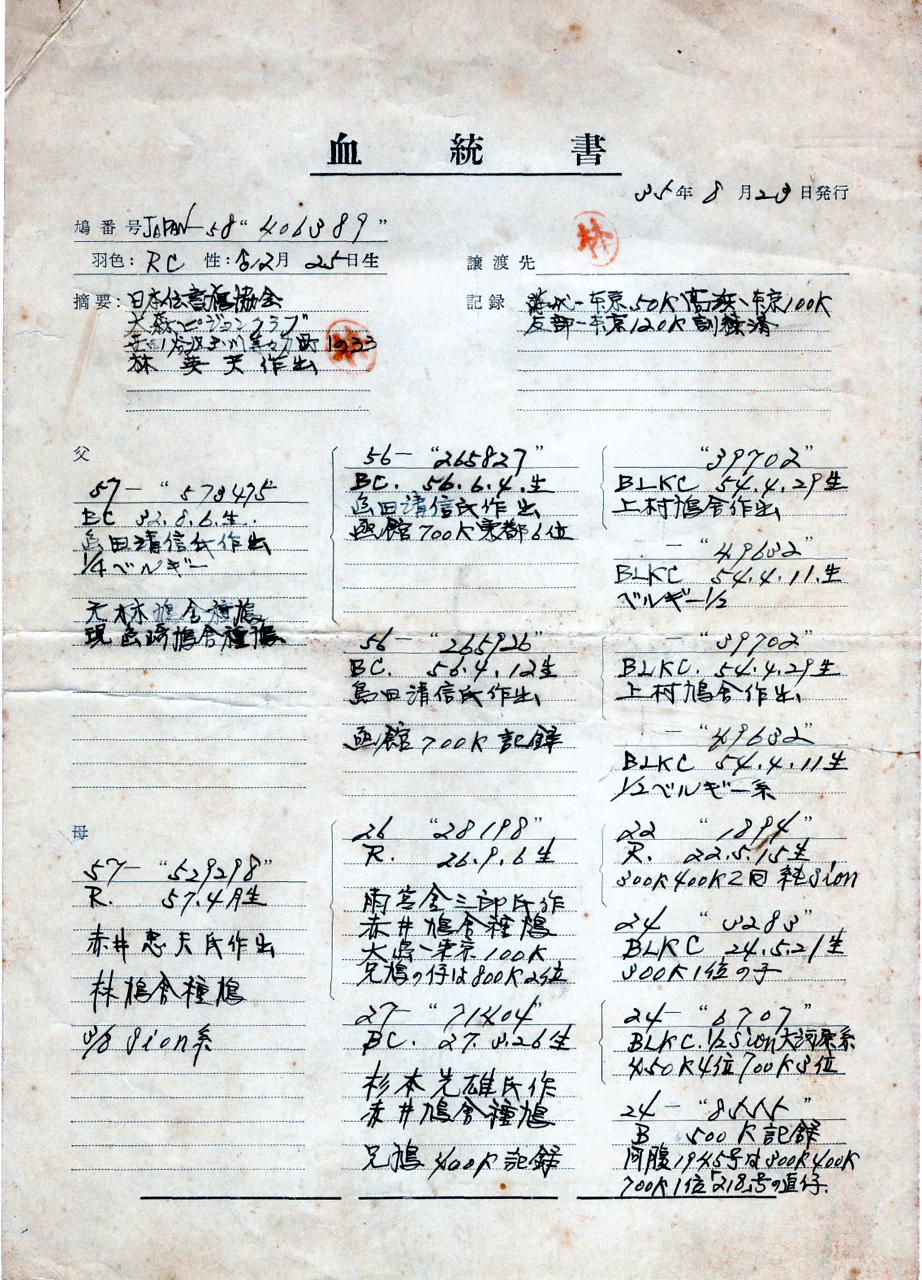 血統書
35年8月23日発行
鳩番号 JAPAN-58 "406389"
羽色: RC 性: ♂ 2月25日生
譲渡先
林
摘要: 日本伝書鳩協会
大森ピジョンクラブ
町1033
林
作出
記録
東京50K 東京100K
友部-東京120K 訓練済
父
57- "573475"
BC 32.8.6.生.
島田清信氏作出
1/4ベルギー
元林鳩舎種鳩
現 鳩舎種鳩
56- "265827"
BC. 56.6.4.生
島田清信氏作出
函館700K東都6位
56- "265926"
BC. 56.4.12生
島田清信氏作出
函館700K記録
"39702"
BLKC 54.4.29生
上村鳩舎作出
- "49632"
BLKC 54.4.11.生
ベルギー1/2
- "39702"
BLKC. 54.4.29生
上村鳩舎作出
- "49632"
BLKC 54.4.11生
1/2ベルギー系
母
57- "529298"
R. 57.4月生
赤井 氏作出
林鳩舎種鳩
3/8 Sion系
26 "28198"
R. 26.9.6生
雨宮金三郎氏作
赤井鳩舎種鳩
大島-東京100K
兄鳩の仔は800K2位
27- "71404"
BC. 27.3.26生
杉本光雄氏作
赤井鳩舎種鳩
兄鳩400K記録
22 "1894"
R. 22.5.15生
300K400K2回 純Sion
24 "3283"
BLKC 24.5.21生
300K1位の子
24- "6707"
BLKC. 1/2Sion 系
450K4位700K3位
24- "8555"
B 500K記録
同腹1945号は300K400K
700K1位「218」号の直仔.